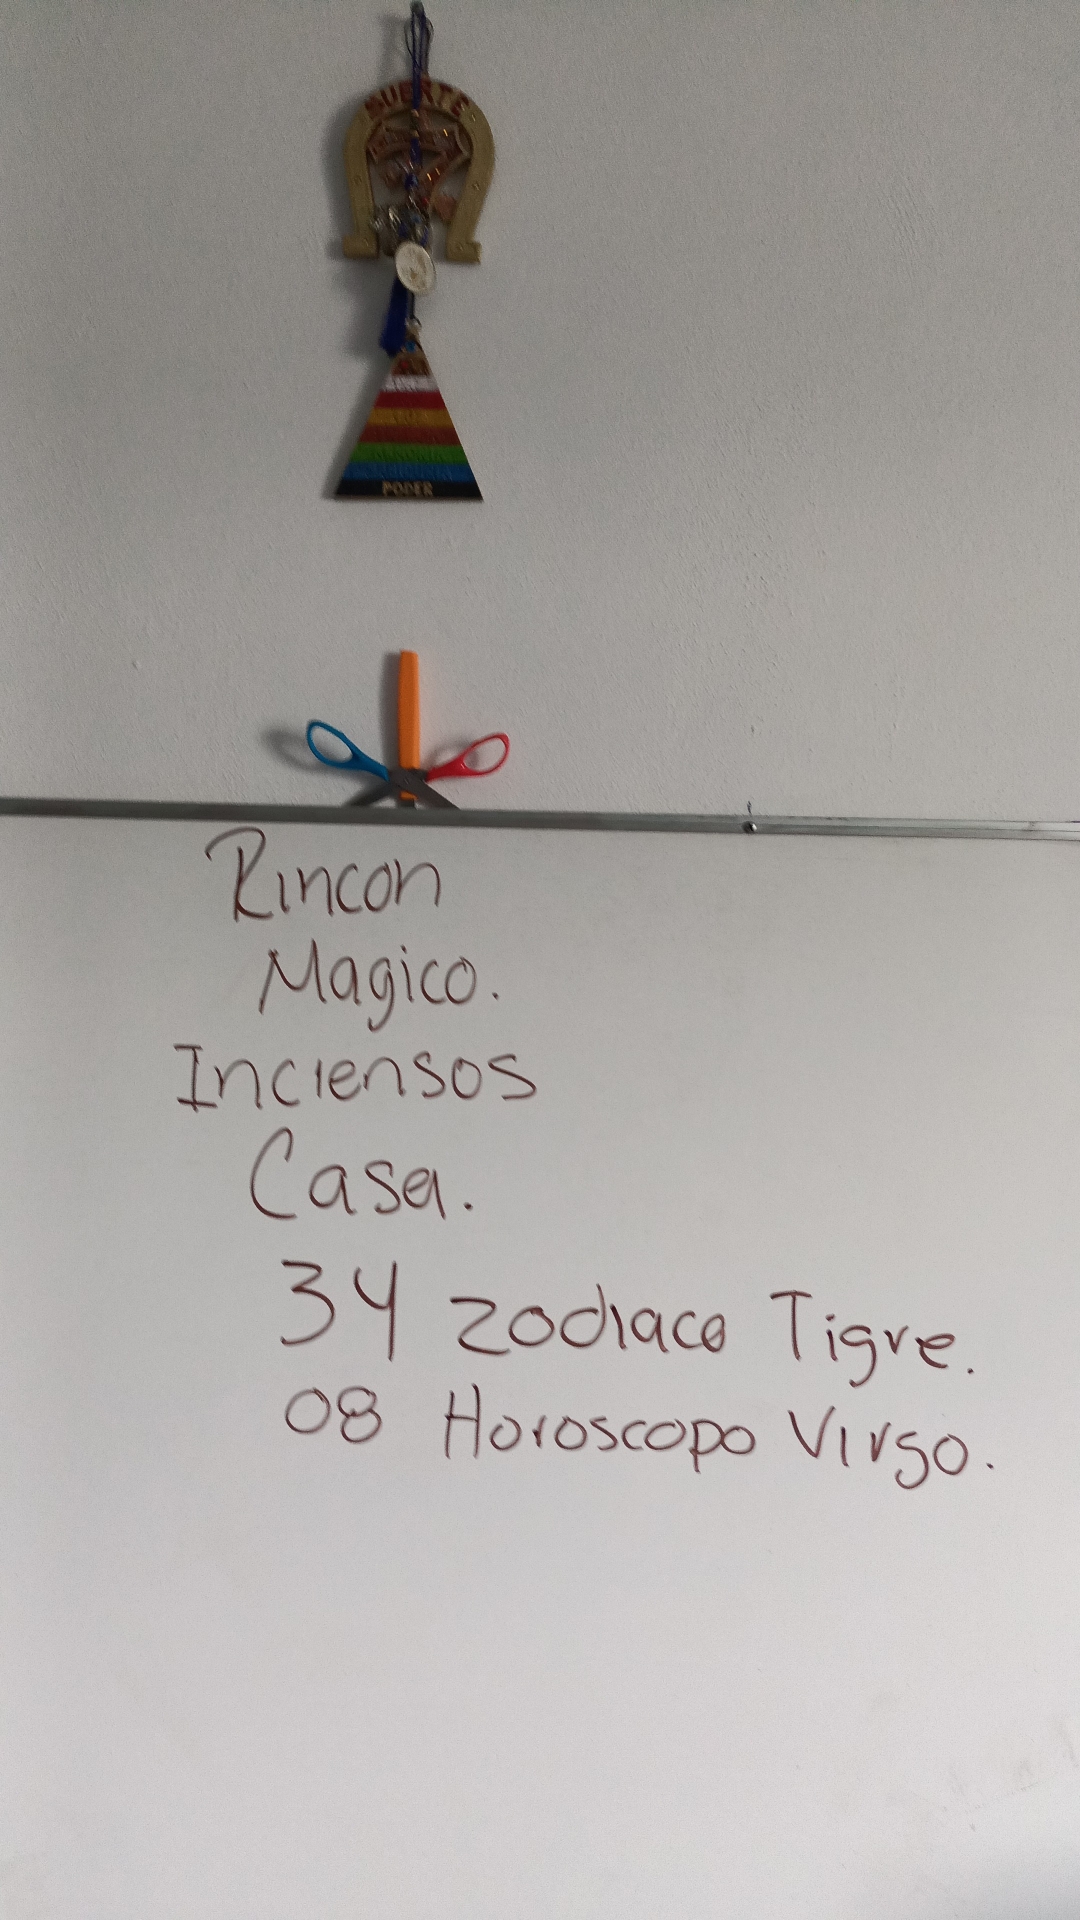 SUERTE
PODER
Rincon
Magico.
Inciensos
Casa.
34 zodiaco Tigre.
08 Horoscopo Virgo.